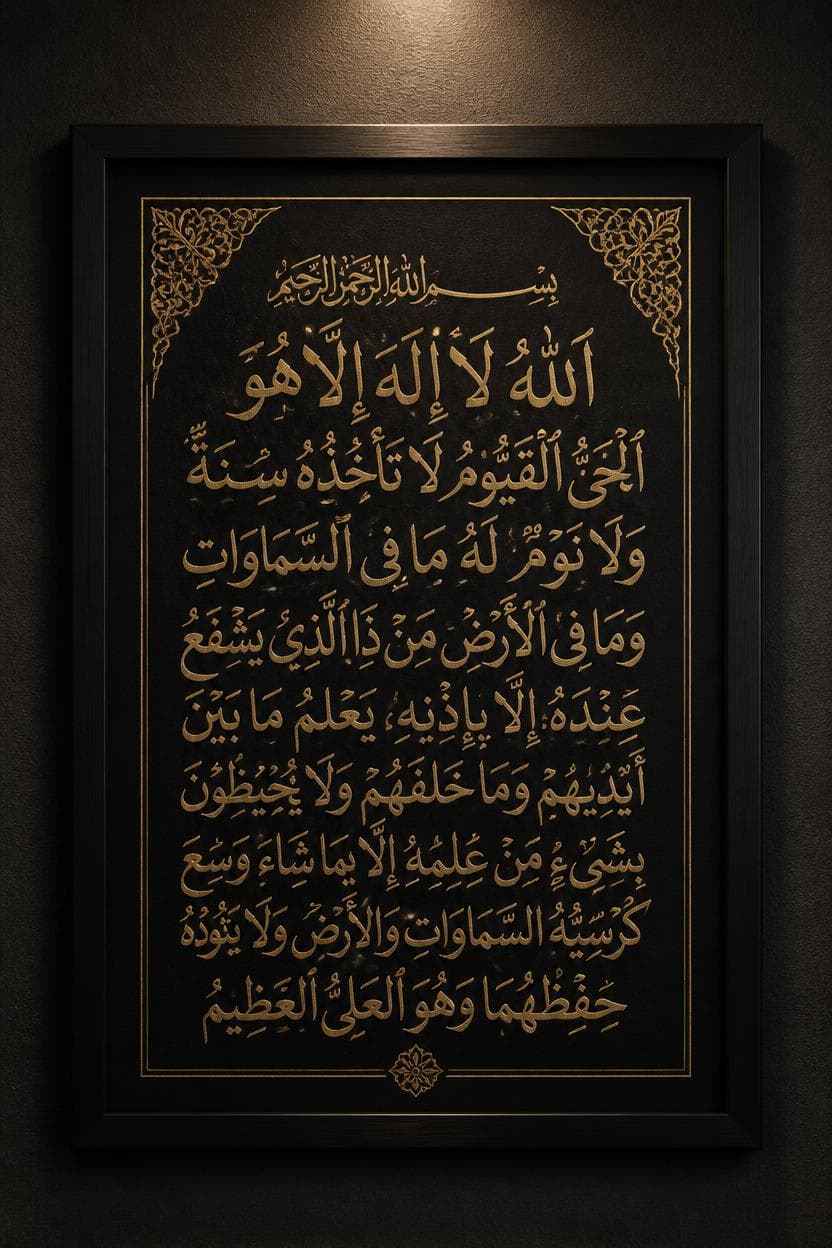 بِسْمِ اللهِ الرَّحْمٰنِ الرَّحِيمِ
اَللّٰهُ لَا إِلَهَ إِلَّا هُوَ
الْحَيُّ الْقَيُّوْمُ لَا تَأْخُذُهُ سِنَةٌ
وَلَا نَوْمٌ لَهُ مَا فِى السَّمَاوَاتِ
وَمَا فِى الْأَرْضِ مِنْ ذَا الَّذِيْ يَشْفَعُ
عِنْدَهُ إِلَّا بِإِذْنِهِ يَعْلَمُ مَا بَيْنَ
أَيْدِيهِمْ وَمَا خَلفَهُمْ وَلَا يُحِيْظُوْنَ
بِشَىْءٍ مِنْ عِلِمِهِ إِلَّا يمَا شَاءَ وَسِعَ
كُرْسِيُّهُ السَّمَاوَاتِ وَالْأَرْضَ وَلَا يَئُودُهُ
حِفِظْهُمَا وَهُوَ الْعَلِىُّ الْعَظِيمُ